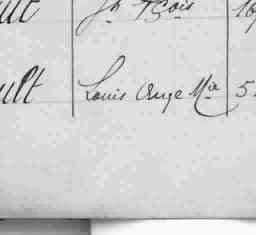 ult Jh Bois 16
ult Louis Ange Mie 5